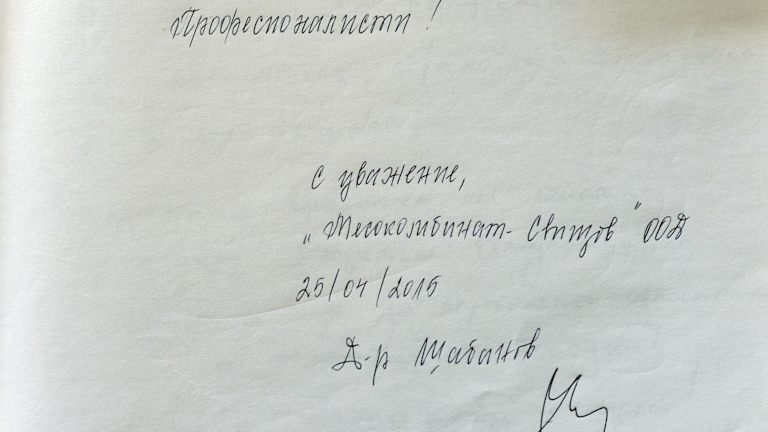 Професионалисти!
с уважение,
„Месокомбинат-Свищов" ООД
25/04/2015
Д-р Щабанов